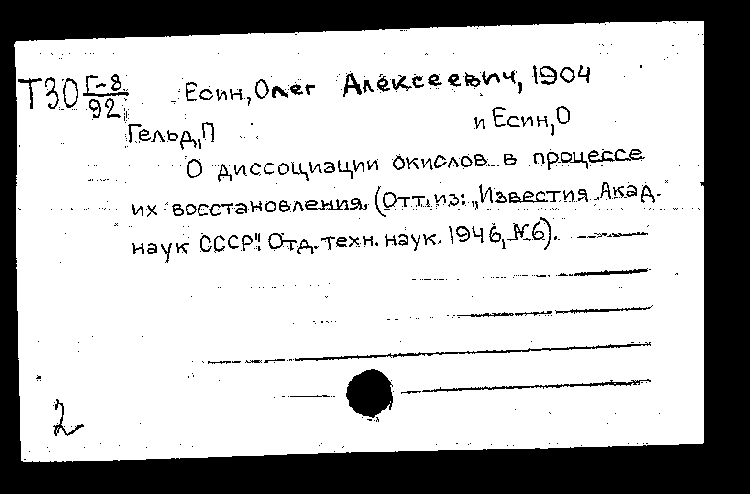 Т30 Г-8/92 Есин, Олег Алексеевич, 1904
Гельд, П и Есин, О
О диссоциации окислов в процессе
их восстановления. (Отт. из: „Известия Акад.
наук СССР". Отд. техн. наук. 1946, №6).
2